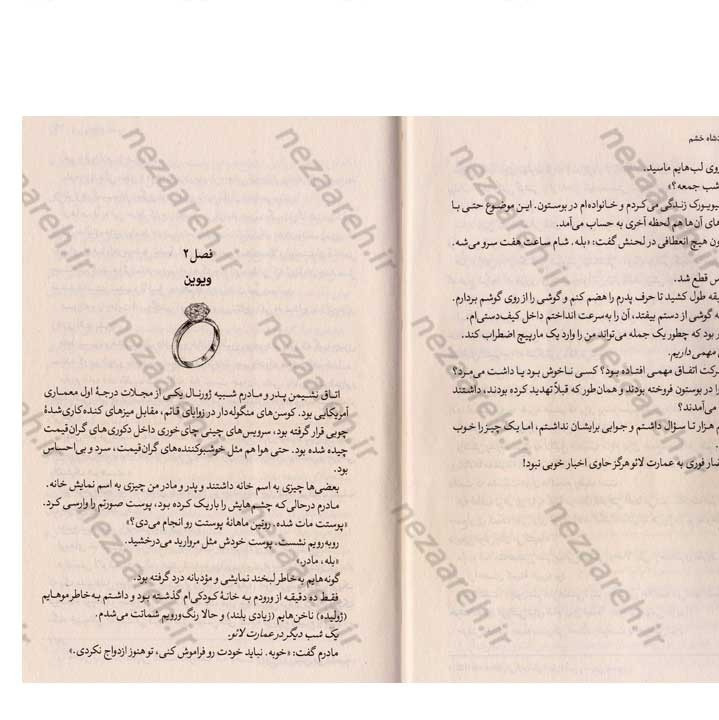 دشاه خشم
روی لب‌هایم ماسید.
شب جمعه؟»
یویورک زندگی می‌کردم و خانواده‌ام در بوستون. این موضوع حتی با
های آن‌ها هم لحظه آخری به حساب می‌آمد.
ون هیچ انعطافی در لحنش گفت: «بله. شام ساعت هفت سرو می‌شه.
س قطع شد.
یقه طول کشید تا حرف پدرم را هضم کنم و گوشی را از روی گوشم بردارم.
ه گوشی از دستم بیفتد، آن را به‌سرعت انداختم داخل کیف‌دستی‌ام.
ر بود که چطور یک جمله می‌تواند من را وارد یک مارپیچ اضطراب کند.
مهمی داریم.
رکت اتفاق مهمی افتاده بود؟ کسی ناخوش بود یا داشت می‌مرد؟
را در بوستون فروخته بودند و همان‌طور که قبلاً تهدید کرده بودند، داشتند
می‌آمدند؟
م هزار تا سؤال داشتم و جوابی برایشان نداشتم، اما یک چیز را خوب
ضار فوری به عمارت لائو هرگز حاوی اخبار خوبی نبود!
فصل ۲
ویوین
اتاق نشیمن پدر و مادرم شبیه ژورنال یکی از مجلات درجهٔ اول معماری
آمریکایی بود. کوسن‌های منگوله‌دار در زوایای قائم، مقابل میزهای کنده‌کاری‌شدهٔ
چوبی قرار گرفته بود، سرویس‌های چینی چای‌خوری داخل دکوری‌های گران‌قیمت
چیده شده بود. حتی هوا هم مثل خوشبوکننده‌های گران‌قیمت، سرد و بی‌احساس
بود.
بعضی‌ها چیزی به اسم خانه داشتند و پدر و مادر من چیزی به اسم نمایش خانه.
مادرم درحالی‌که چشم‌هایش را باریک کرده بود، پوست صورتم را وارسی کرد.
«پوستت مات شده. روتین ماهانهٔ پوستت رو انجام می‌دی؟»
روبه‌رویم نشست. پوست خودش مثل مروارید می‌درخشید.
«بله، مادر.»
گونه‌هایم به‌خاطر لبخند نمایشی و مؤدبانه درد گرفته بود.
فقط ده دقیقه از ورودم به خانهٔ کودکی‌ام گذشته بود و داشتم به‌خاطر موهایم
(ژولیده) ناخن‌هایم (زیادی بلند) و حالا رنگ‌ورویم شماتت می‌شدم.
یک شب دیگر در عمارت لائو.
مادرم گفت: «خوبه. نباید خودت رو فراموش کنی، تو هنوز ازدواج نکردی.»
nezaareh.ir
nezaareh.ir
nezaareh.ir
nezaareh.ir
nezaareh.ir
nezaareh.ir
nezaareh.ir